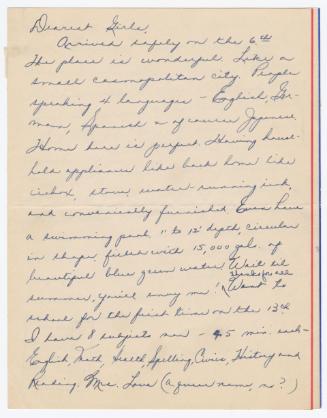 Dearest Girls,
Arrived safely on the 6th
The place is wonderful. Like a
small cosmopolitan city. People
speaking 4 languages - English, Ger-
man, Spanish & of course Japanese.
Home here is perfect. Having house-
hold appliances like back home like
icebox, stove, water-running sink,
and conveniently furnished. Even have
a swimming pool, " to 12' depth, circular
in shape, filled with 15,000 gals. of
beautiful blue green water. Wait til
summer, you'll envy me! Thanks for all
Went to
school for the first time on the 13th
I have 8 subjects now - 45 min. each
English, Math, Health, Spelling, Civics, History and
Reading. Mr. Love (a queer name, no?)